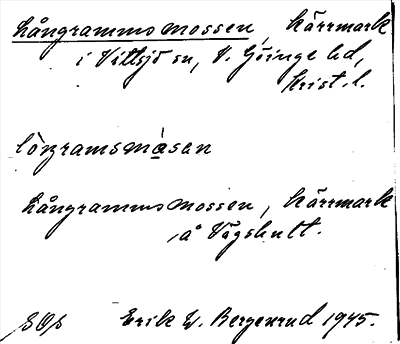 Långrammsmossen, kärrmark
i Vittsjö sn, V. Göinge hd,
Krist. l.
Långrammsmossen, kärrmark
å Vägshult.
Erik W. Bergenrud 1945.